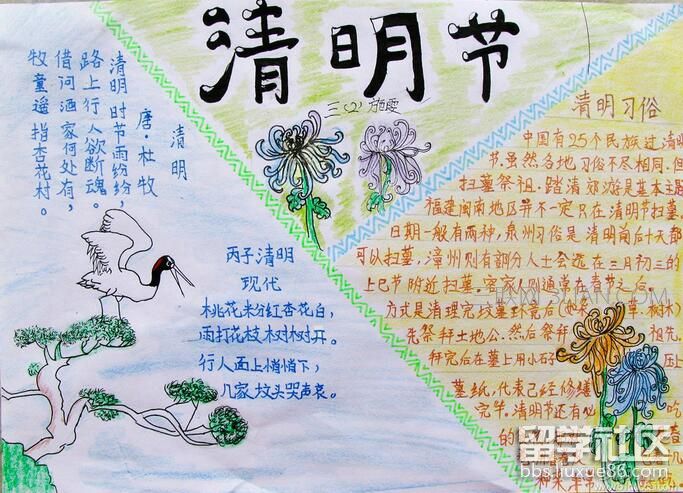 清明节
三(2)
清明
唐·杜牧
清明时节雨纷纷，
路上行人欲断魂。
借问酒家何处有，
牧童遥指杏花村。
丙子清明
现代
桃花粉红杏花白，
雨打花枝树树开。
行人面上悄悄下，
几家坟头哭声哀。
清明习俗
中国有25个民族过清明
节。虽然各地习俗不尽相同，但
扫墓祭祖、踏青郊游是基本主
福建闽南地区并不一定只在清明节扫墓。
日期一般有两种，泉州习俗是清明前后十天都
可以扫墓。漳州则有部分人士会选在三月初三的
上巳节附近扫墓。客家人则通常在春节之后。
方式是清理完坟墓环境后(如 草、树木)
先祭拜土地公。然后祭拜 祖先。
拜完后在墓上用小石 压上
墓纸，代表已经修缮
完毕。清明节还有 吃
的
留学社区
bbs.liuxue86.com